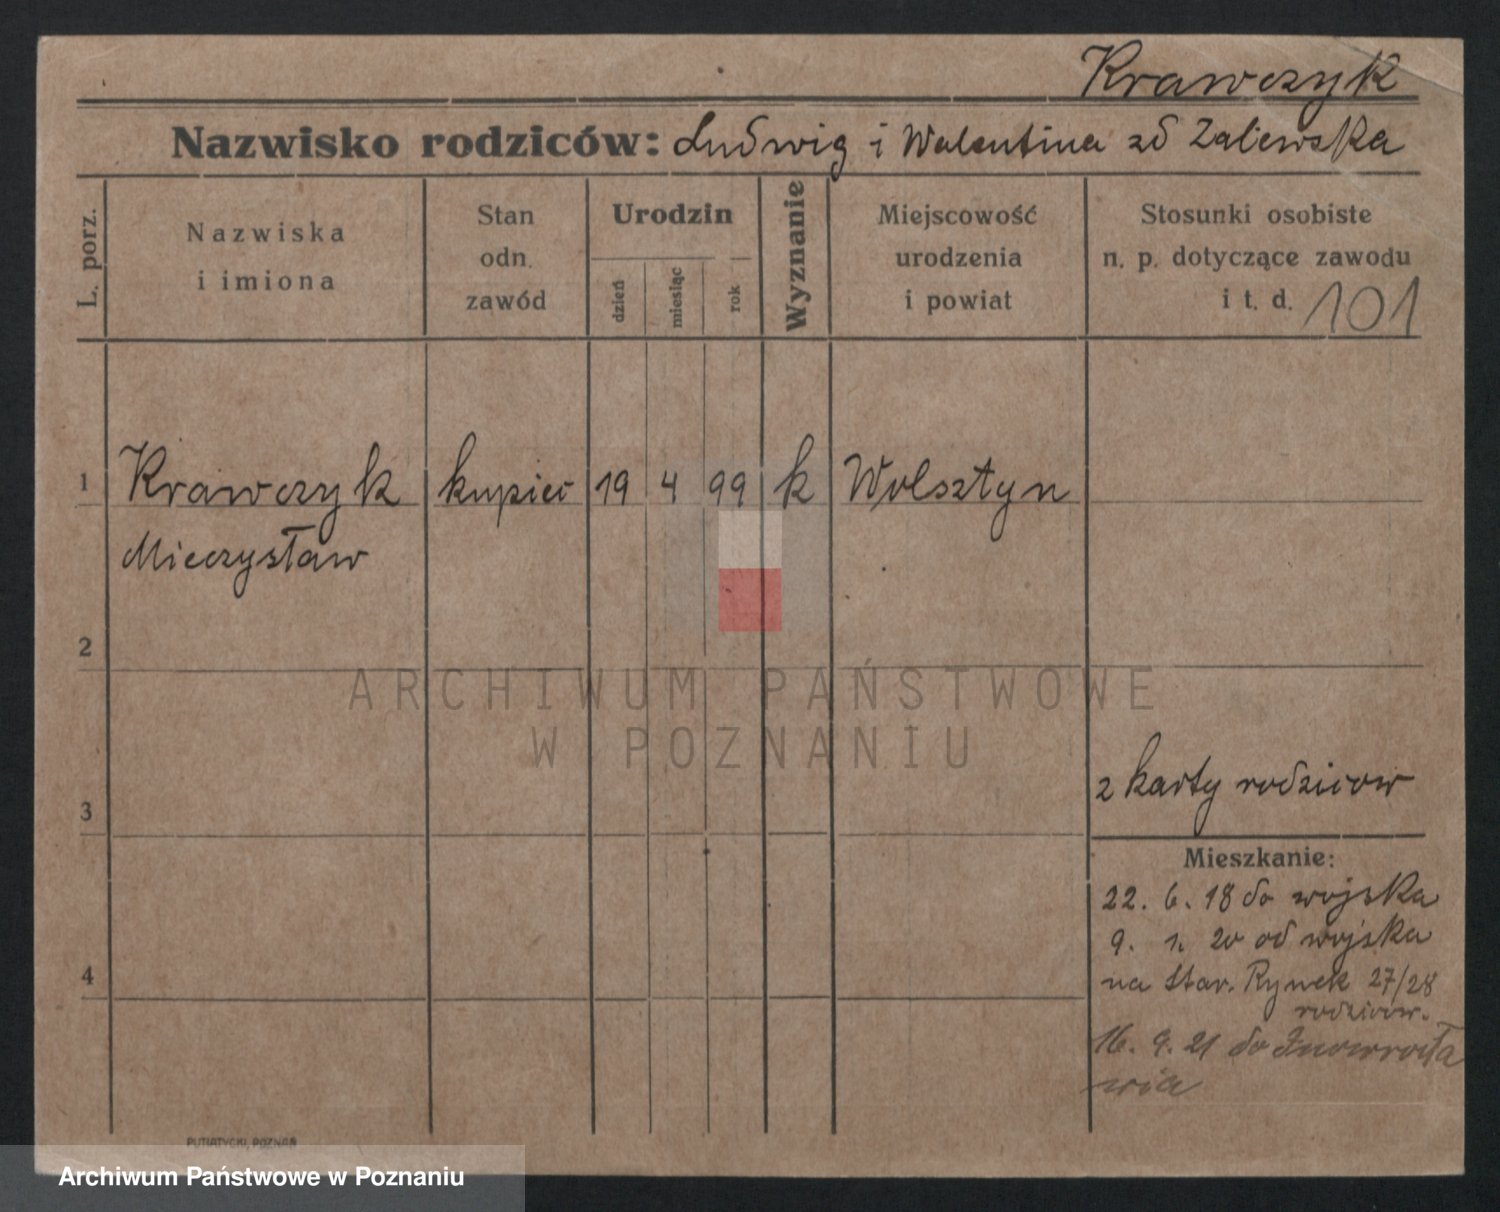 Krawczyk
Nazwisko rodziców: Ludwig i Walentina zd Zalewska
L. porz.
Nazwiska
i imiona
Stan
odn.
zawód
Urodzin
dzień
miesiąc
rok
Wyznanie
Miejscowość
urodzenia
i powiat
Stosunki osobiste
n. p. dotyczące zawodu
i t. d. 101
1 Krawczyk kupiec 19 4 99 k Wolsztyn
Mieczysław
2
ARCHIWUM PAŃSTWOWE
W POZNANIU
z karty rodziców
3
Mieszkanie:
22. 6. 18 do wojska
9. 1. 20 od wojska
4
na Star. Rynek 27/28
rodziców.
16. 9. 21 do Inowrocła
wia
PUTIATYCKI, POZNAŃ
Archiwum Państwowe w Poznaniu